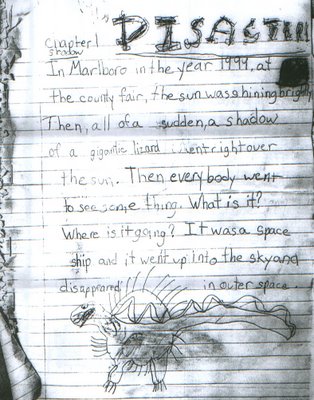 DISASTER
Chapter 1
shadow
In Marlboro in the year 1999, at
the county fair, the sun was shining brightly
Then, all of a sudden, a shadow
of a gigantic lizard went right over
the sun. Then everybody went
to see some thing. What is it?
Where is it going? It was a space
ship and it went up into the sky and
disappeared in outer space.